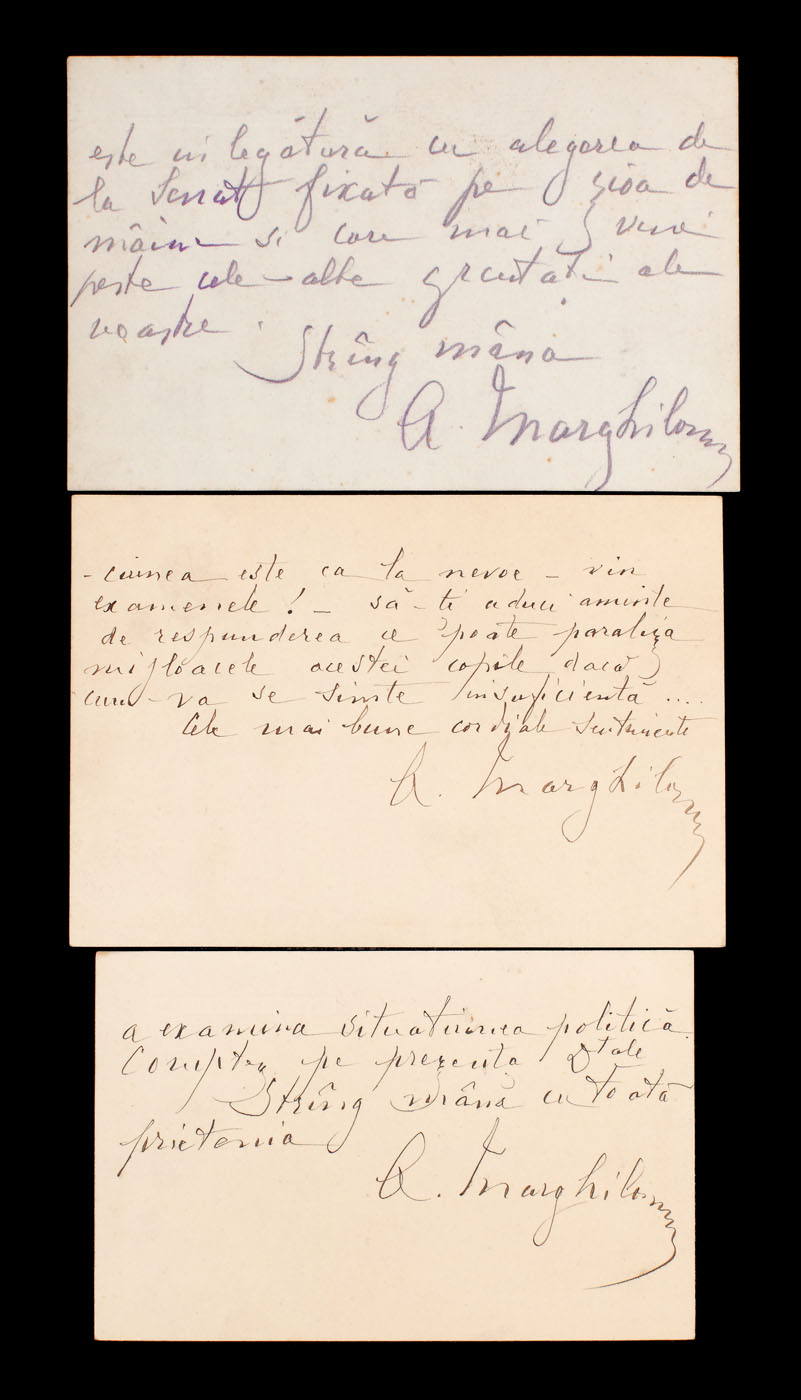 este in legătură cu alegerea de
la Senat fixată pe ziua de
mâine si care mai vine
peste cele-alte greutăti ale
voastre.
Strîng mâna
A. Marghiloman
-ciunea este ca la nevoe - vin
examenele! - să-ti aduci aminte
de respunderea ce poate paraliza
mijloacele acestei copile dacă
cum-va se simte insuficientă ....
Cele mai bune cordiale sentimente
A. Marghiloman
a examina situatiunea politică.
Comptez pe prezenta Dtale
Strîng mâna cu toată
prietenia
A. Marghiloman